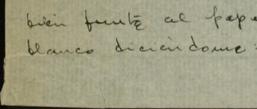 bien frente al pape
blanco diciéndome: